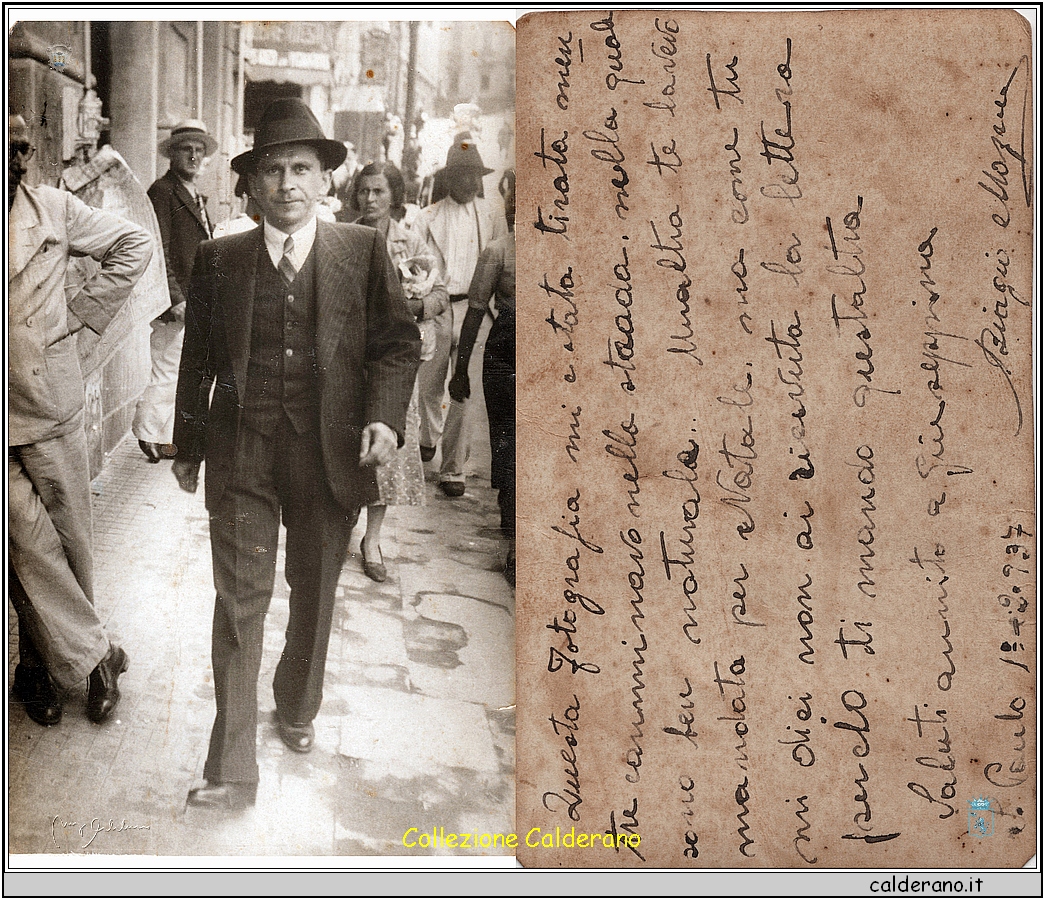 Questa Fotografia mi e stata tirata men
tre camminavo nella strada, nella quale
sono ben naturale.. Unaltra te lavevo
mandata per Natale, ma come tu
mi dici non ai ricevuta la lettera
percio ti mando questaltra
Saluti a Giuseppina
Biagio
S. Paulo 1º 937
Collezione Calderano
calderano.it